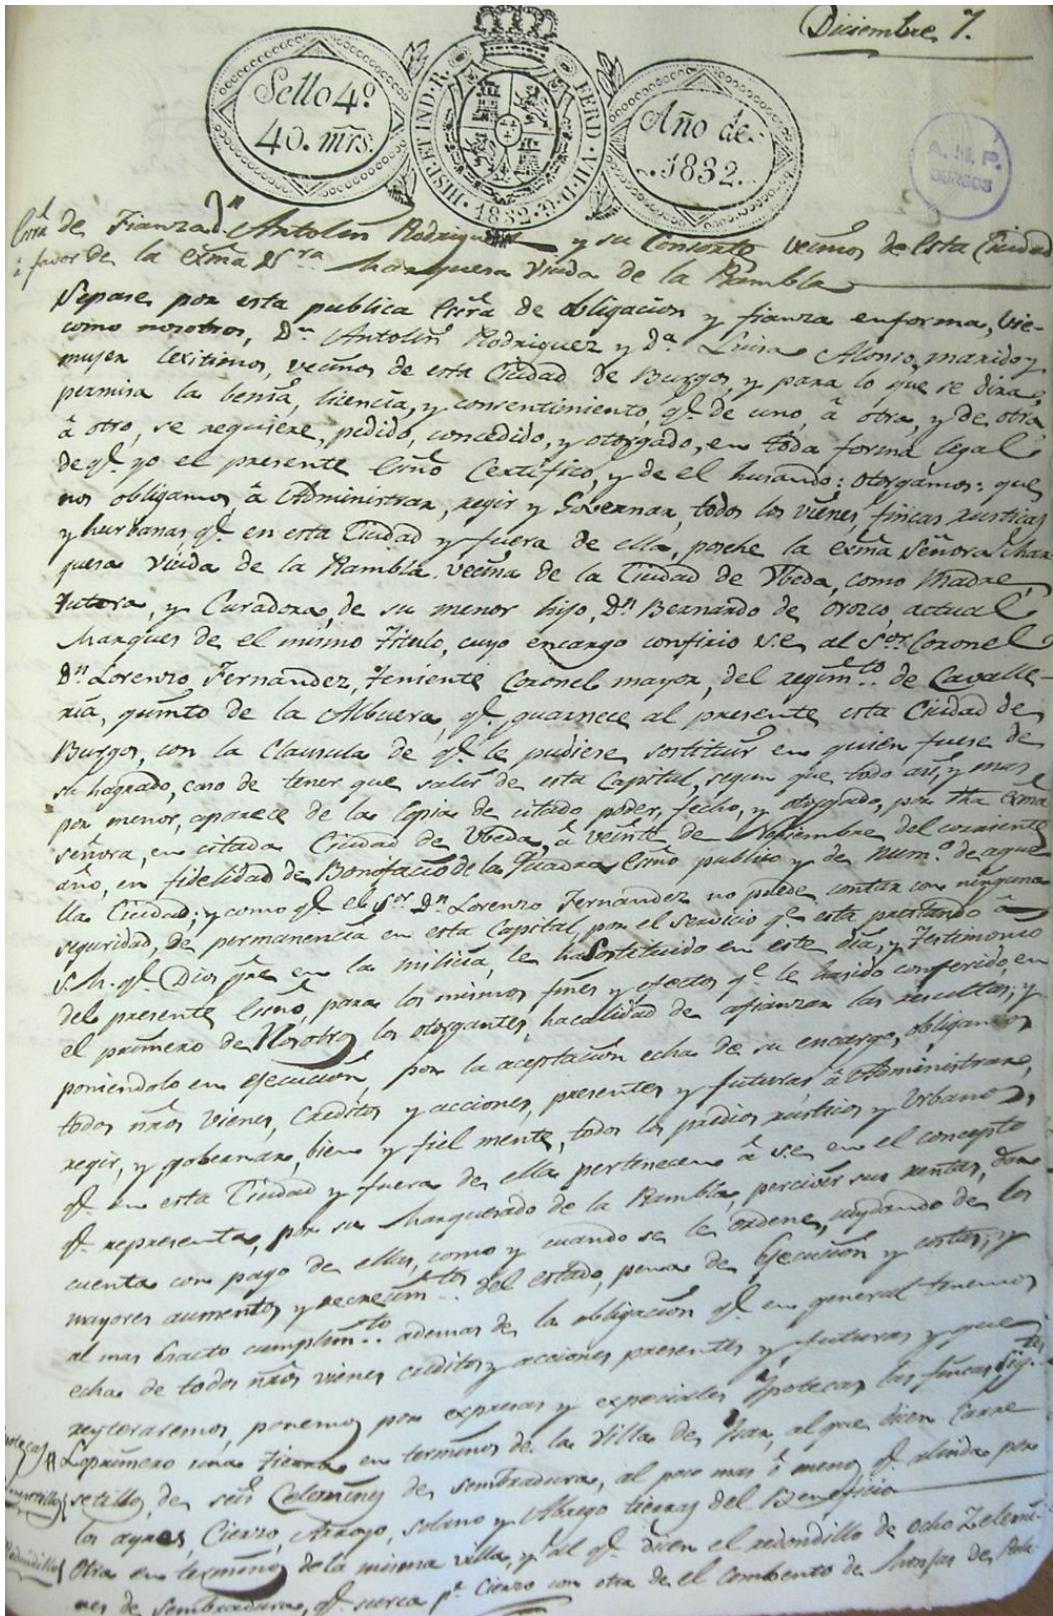 Diciembre 7.
Sello 4º
40. mrs.
HISP. ET IND. R. FERD. VII. D. G. 1832
Año de
1832.
A. H. P.
BURGOS
Essrâ de Fianza Dn Antolin Rodriguez y su Consorte vecinos de esta Ciudad
â favor de la exmâ Sra Marquesa Viuda de la Rambla
Sepase por esta publica Essrâ de obligacion y fianza enforma, vie-
como nosotros, Dn Antolin Rodriguez y Dª Luisa Alonso, marido y
mujer lexitimos, vecinos de esta Ciudad de Burgos, y para lo que se dira,
permisa la benia, licencia, y consentimiento, qe. de uno, â otra, y de otra
â otro, se requiere, pedido, concedido, y otorgado, en toda forma legal
de qe. yo el presente Essnô Certifico, y de el husando: otorgamos: que
nos obligamos, â Administrar, regir y Governar, todos los vienes, fincas rusticas
y hurbanas qe. en esta Ciudad y fuera de ella, poshe la exmâ Señora Mar
quesa Viuda de la Rambla vecina de la Ciudad de Vbeda, como Madre
tutora, y Curadora, de su menor hijo, Dn Bernardo de Orozco, actual
Marques de el mismo Titulo, cuyo encargo confirio S.E. al Sor. Coronel
Dn Lorenzo Fernandez, Teniente Coronel mayor, del regimto. de Cavalle-
ria, quinto de la Albuera, qe. guarnece al presente esta Ciudad de
Burgos, con la Clausula de qe. le pudiese sostituir en quien fuese de
su hagrado, caso de tener que salir de esta Capital, segun que todo asi, y mas
por menor, aparece de la Copia de citado poder, fecho, y otorgado, por dha exmâ
señora, en citada Ciudad de Vbeda, â veinte de Nobiembre del corriente
año, en fidelidad de Bonifacio de la Quadra Essnô publico y de Numº. de aque
lla Ciudad; y como qe. el Sor. Dn Lorenzo Fernandez no puede contar con ninguna
seguridad, de permanencia en esta Capital, por el servicio qe. esta prestando â
S.M. qe. Dios gue en la milicia, le ha Sostituido en este dia, y Testimonio
del presente Essnô, para los mismos fines y efectos qe. le ha sido conferido, en
el primero de Nosotros los otorgantes, ha calidad de afianzar las resultas; y
poniendolo en ejecucion, por la aceptacion echa de su encargo, obligando
todos nrôs vienes, Creditos y acciones, presentes y futuras, â Administrar,
regir, y gobernar, bien y fiel mente, todos los predios rusticos y Urbanos,
qe. en esta Ciudad y fuera de ella pertenecen â S.E. en el concepto
qe. representa, por su Marquesado de la Rambla, percivir sus rentas, dar
cuenta con pago de ellas, como y cuando se le ordene, cuydando de los
mayores aumentos y recrecimtos. del estado, pena de Ejecucion y costas; y
al mas Esacto cumplimto. ademas de la obligacion qe. en general tenemos
echa de todos nrôs vienes creditos y acciones presentes y futuras y que
reyteraremos, ponemos por expresas y especiales Ypotecas las fincas sigtes.
Lo primero una Tierra en terminos de la Villa de Ysar, al que dicen Carre
setillo, de seis Celemines de sembradura, al poco mas ô menos qe. alinda por
los ayres, Cierzo, Arroyo, solano y Abrego tierras del Beneficio
Redondillo Otra en terminos de la misma villa, y al qe. dicen el redondillo de ocho Zelemi-
nes de Sembradura, qe. surca pr. Cierzo con otra de el Combento de Monjas de